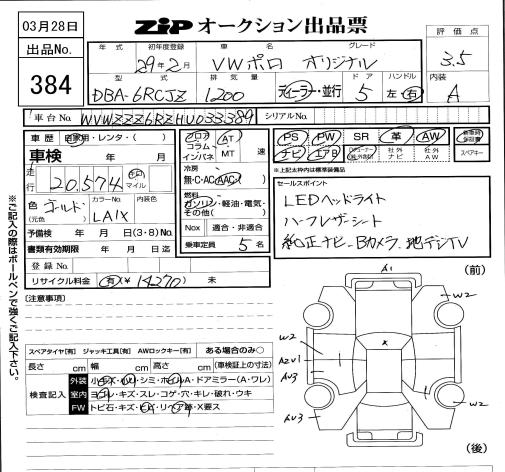 03月28日
出品No.
384
ZIP オークション出品票
年式 初年度登録 車名 グレード
29年2月 VWポロ オリジナル
評価点
3.5
型式 排気量 ドア ハンドル
DBA-6RCJZ 1200 ディーラー・並行 5 左 右
内装
A
車台No. WVWZZZ6RZHU033389 シリアルNo.
車歴 自家用・レンタ・( )
車検 年 月
走行 20,574 km マイル
色(元色) ゴールド カラーNo. LA1X 内装色
予備検 年 月 日(3・8)No.
書類有効期限 年 月 日迄
登録No.
リサイクル料金 有(¥ 14270) 未
フロア コラム インパネ
AT MT 速
冷房
無・C・AC・AAC
燃料
ガソリン・軽油・電気・その他( )
Nox 適合・非適合
乗車定員 5 名
PS PW SR 革 AW
ナビ エアB 社外ナビ 社外AW
スペアキー
※上記太枠内は標準装備品
セールスポイント
LEDヘッドライト
ハーフレザーシート
純正ナビ Bカメラ 地デジTV
※ご記入の際はボールペンで強くご記入下さい。
[注意事項]
スペアタイヤ[有] ジャッキ工具[有] AWロックキー[有] ある場合のみ○
長さ cm 幅 cm 高さ cm (車検証上の寸法)
検査記入
外装 小キズ・小U・シミ・ホイルA・ドアミラー(A・ワレ)
室内 ヨゴレ・キズ・スレ・コゲ・穴・キレ・破れ・ウキ
FW トビ石・キズ・ヒビ・リペア跡・X要ス
(前)
A1
W2
W2
AZU1
AU3
AU3
X
W2
(後)